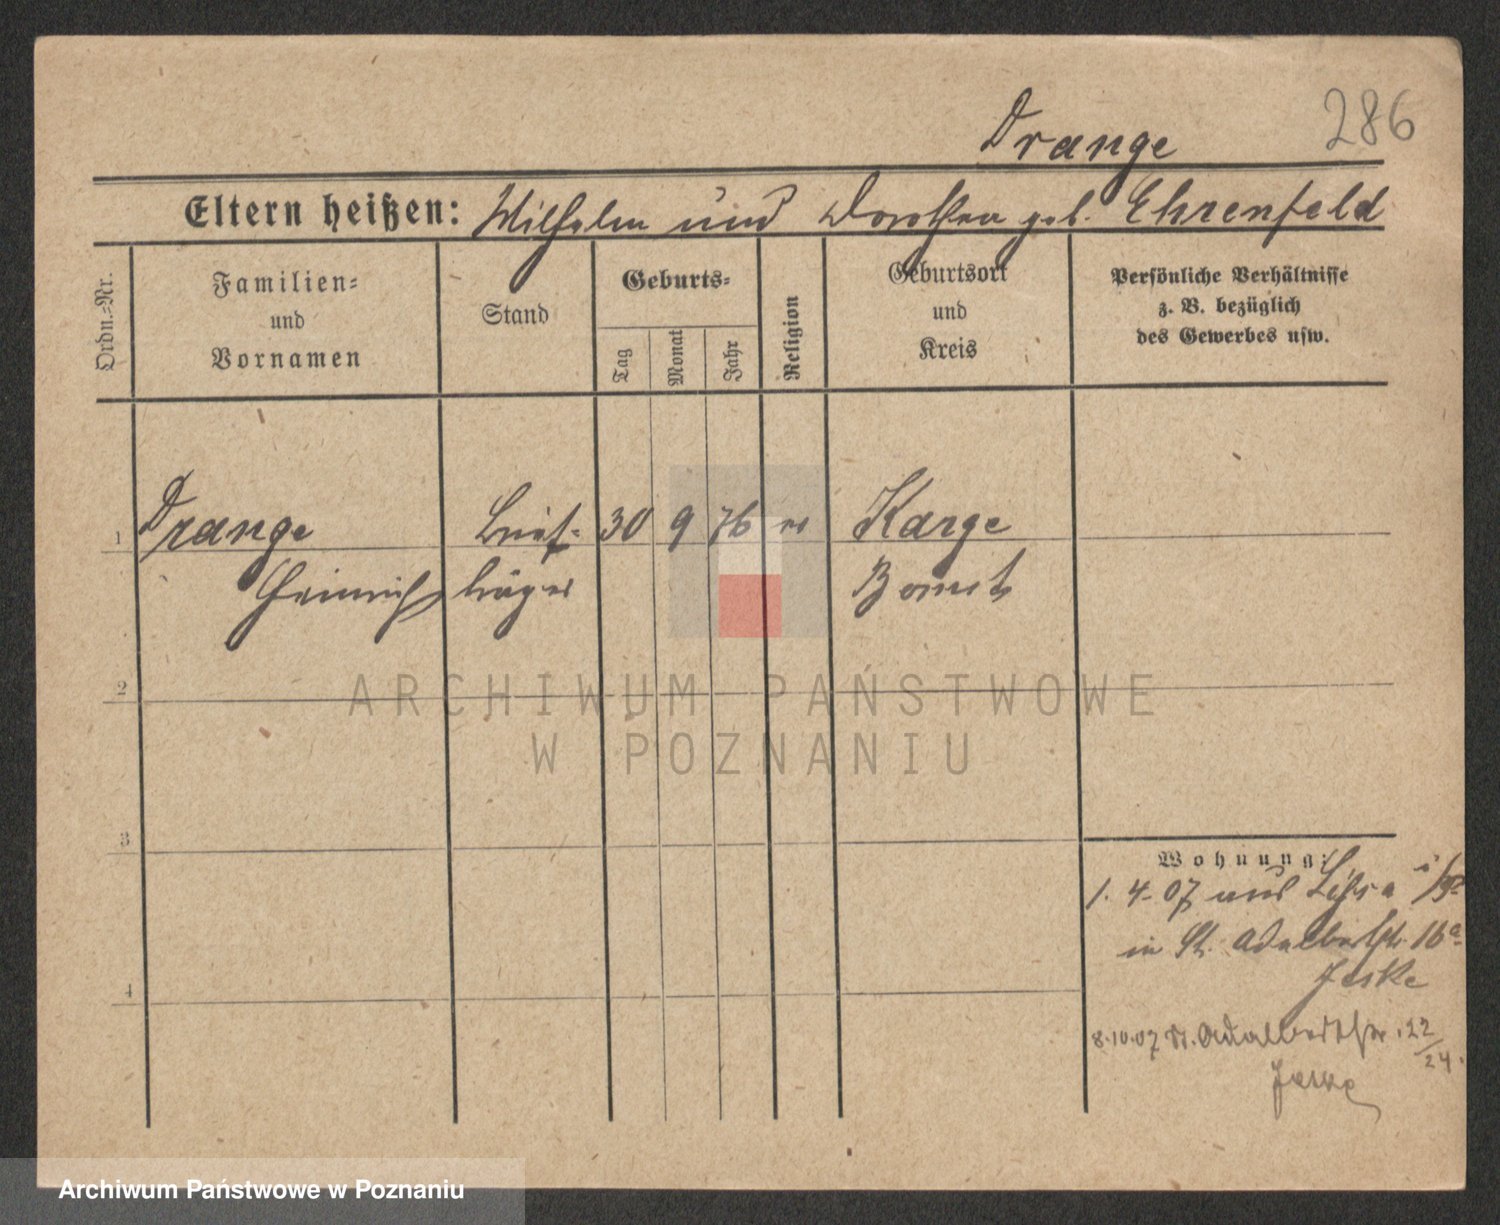 286
Drange
Eltern heißen: Wilhelm und Dorothea geb. Ehrenfeld
Ordn.=Nr.
Familien=
und
Vornamen
Stand
Geburts=
Tag
Monat
Jahr
Religion
Geburtsort
und
Kreis
Persönliche Verhältnisse
z. B. bezüglich
des Gewerbes usw.
1 Drange Brief- 30 9 76 ev Karge
Heinrich träger Bomst
2
ARCHIWUM PAŃSTWOWE
W POZNANIU
3
Wohnung:
1. 4. 07 aus Lissa i/P
in St. Adalbertstr. 16a
Jeske
4
8.10.07 St. Adalbertstr. 22/24.
Jeske
Archiwum Państwowe w Poznaniu